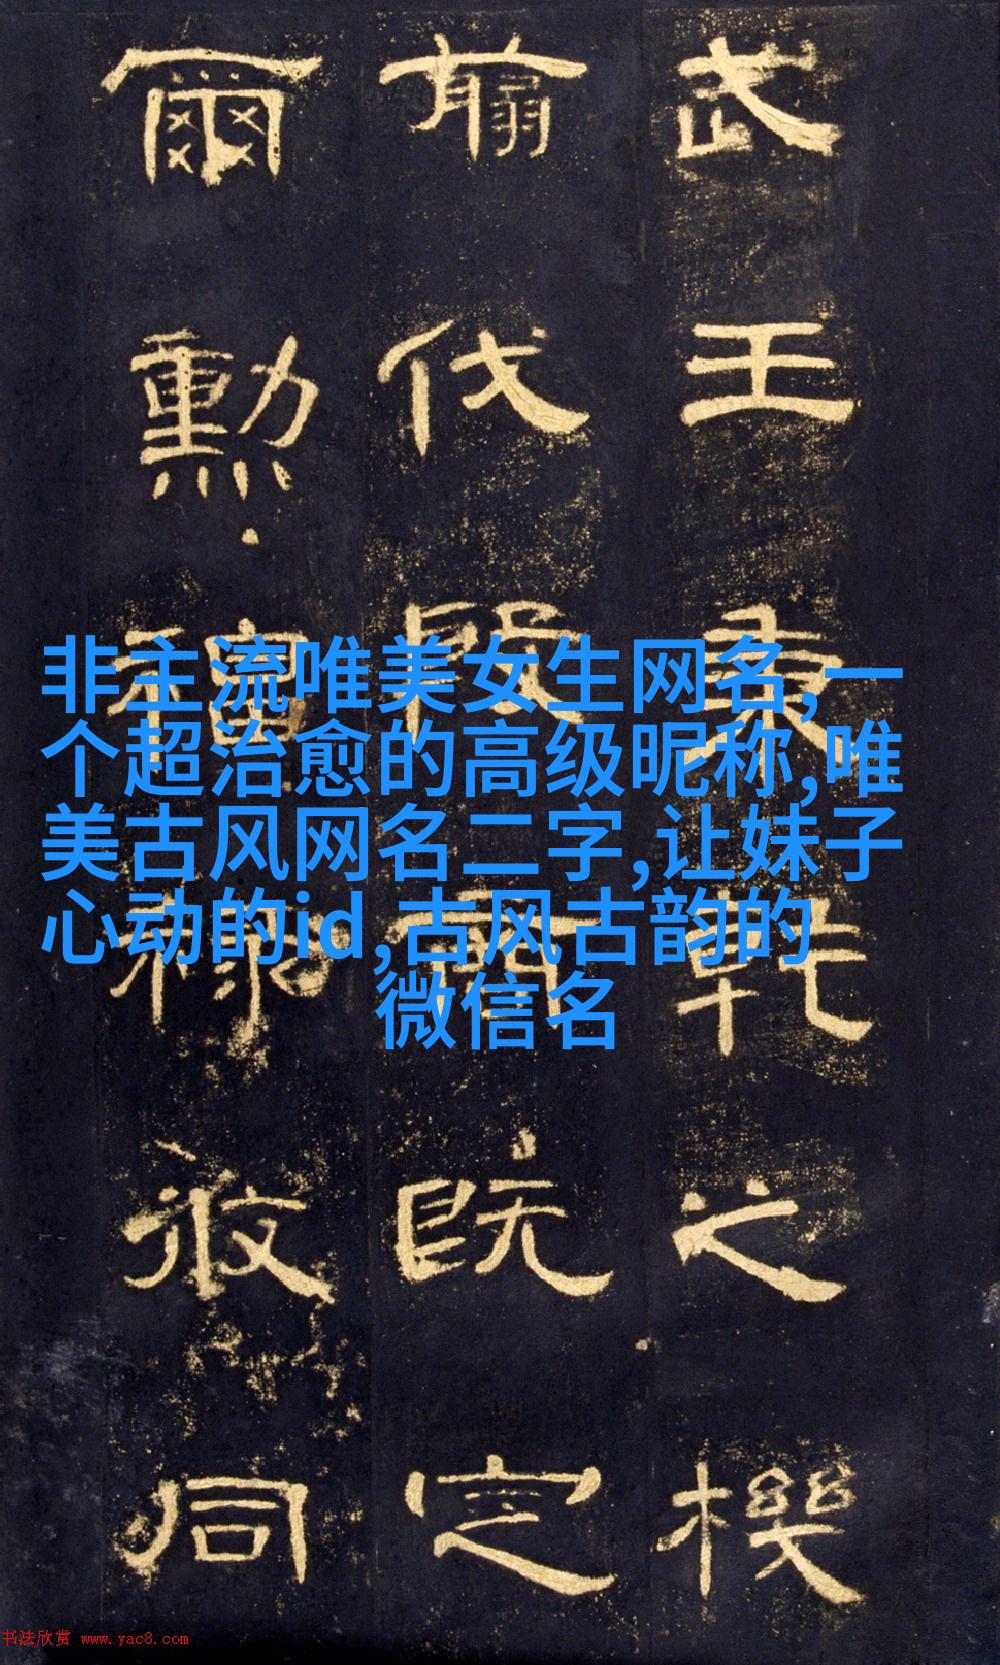 武王秉乾之機
翦伐殷商既定
爾勳福祿攸同
非主流唯美女生网名,一
个超治愈的高级昵称,唯
美古风网名二字,让妹子
心动的id,古风古韵的
微信名
书法欣赏 www.yac8.com